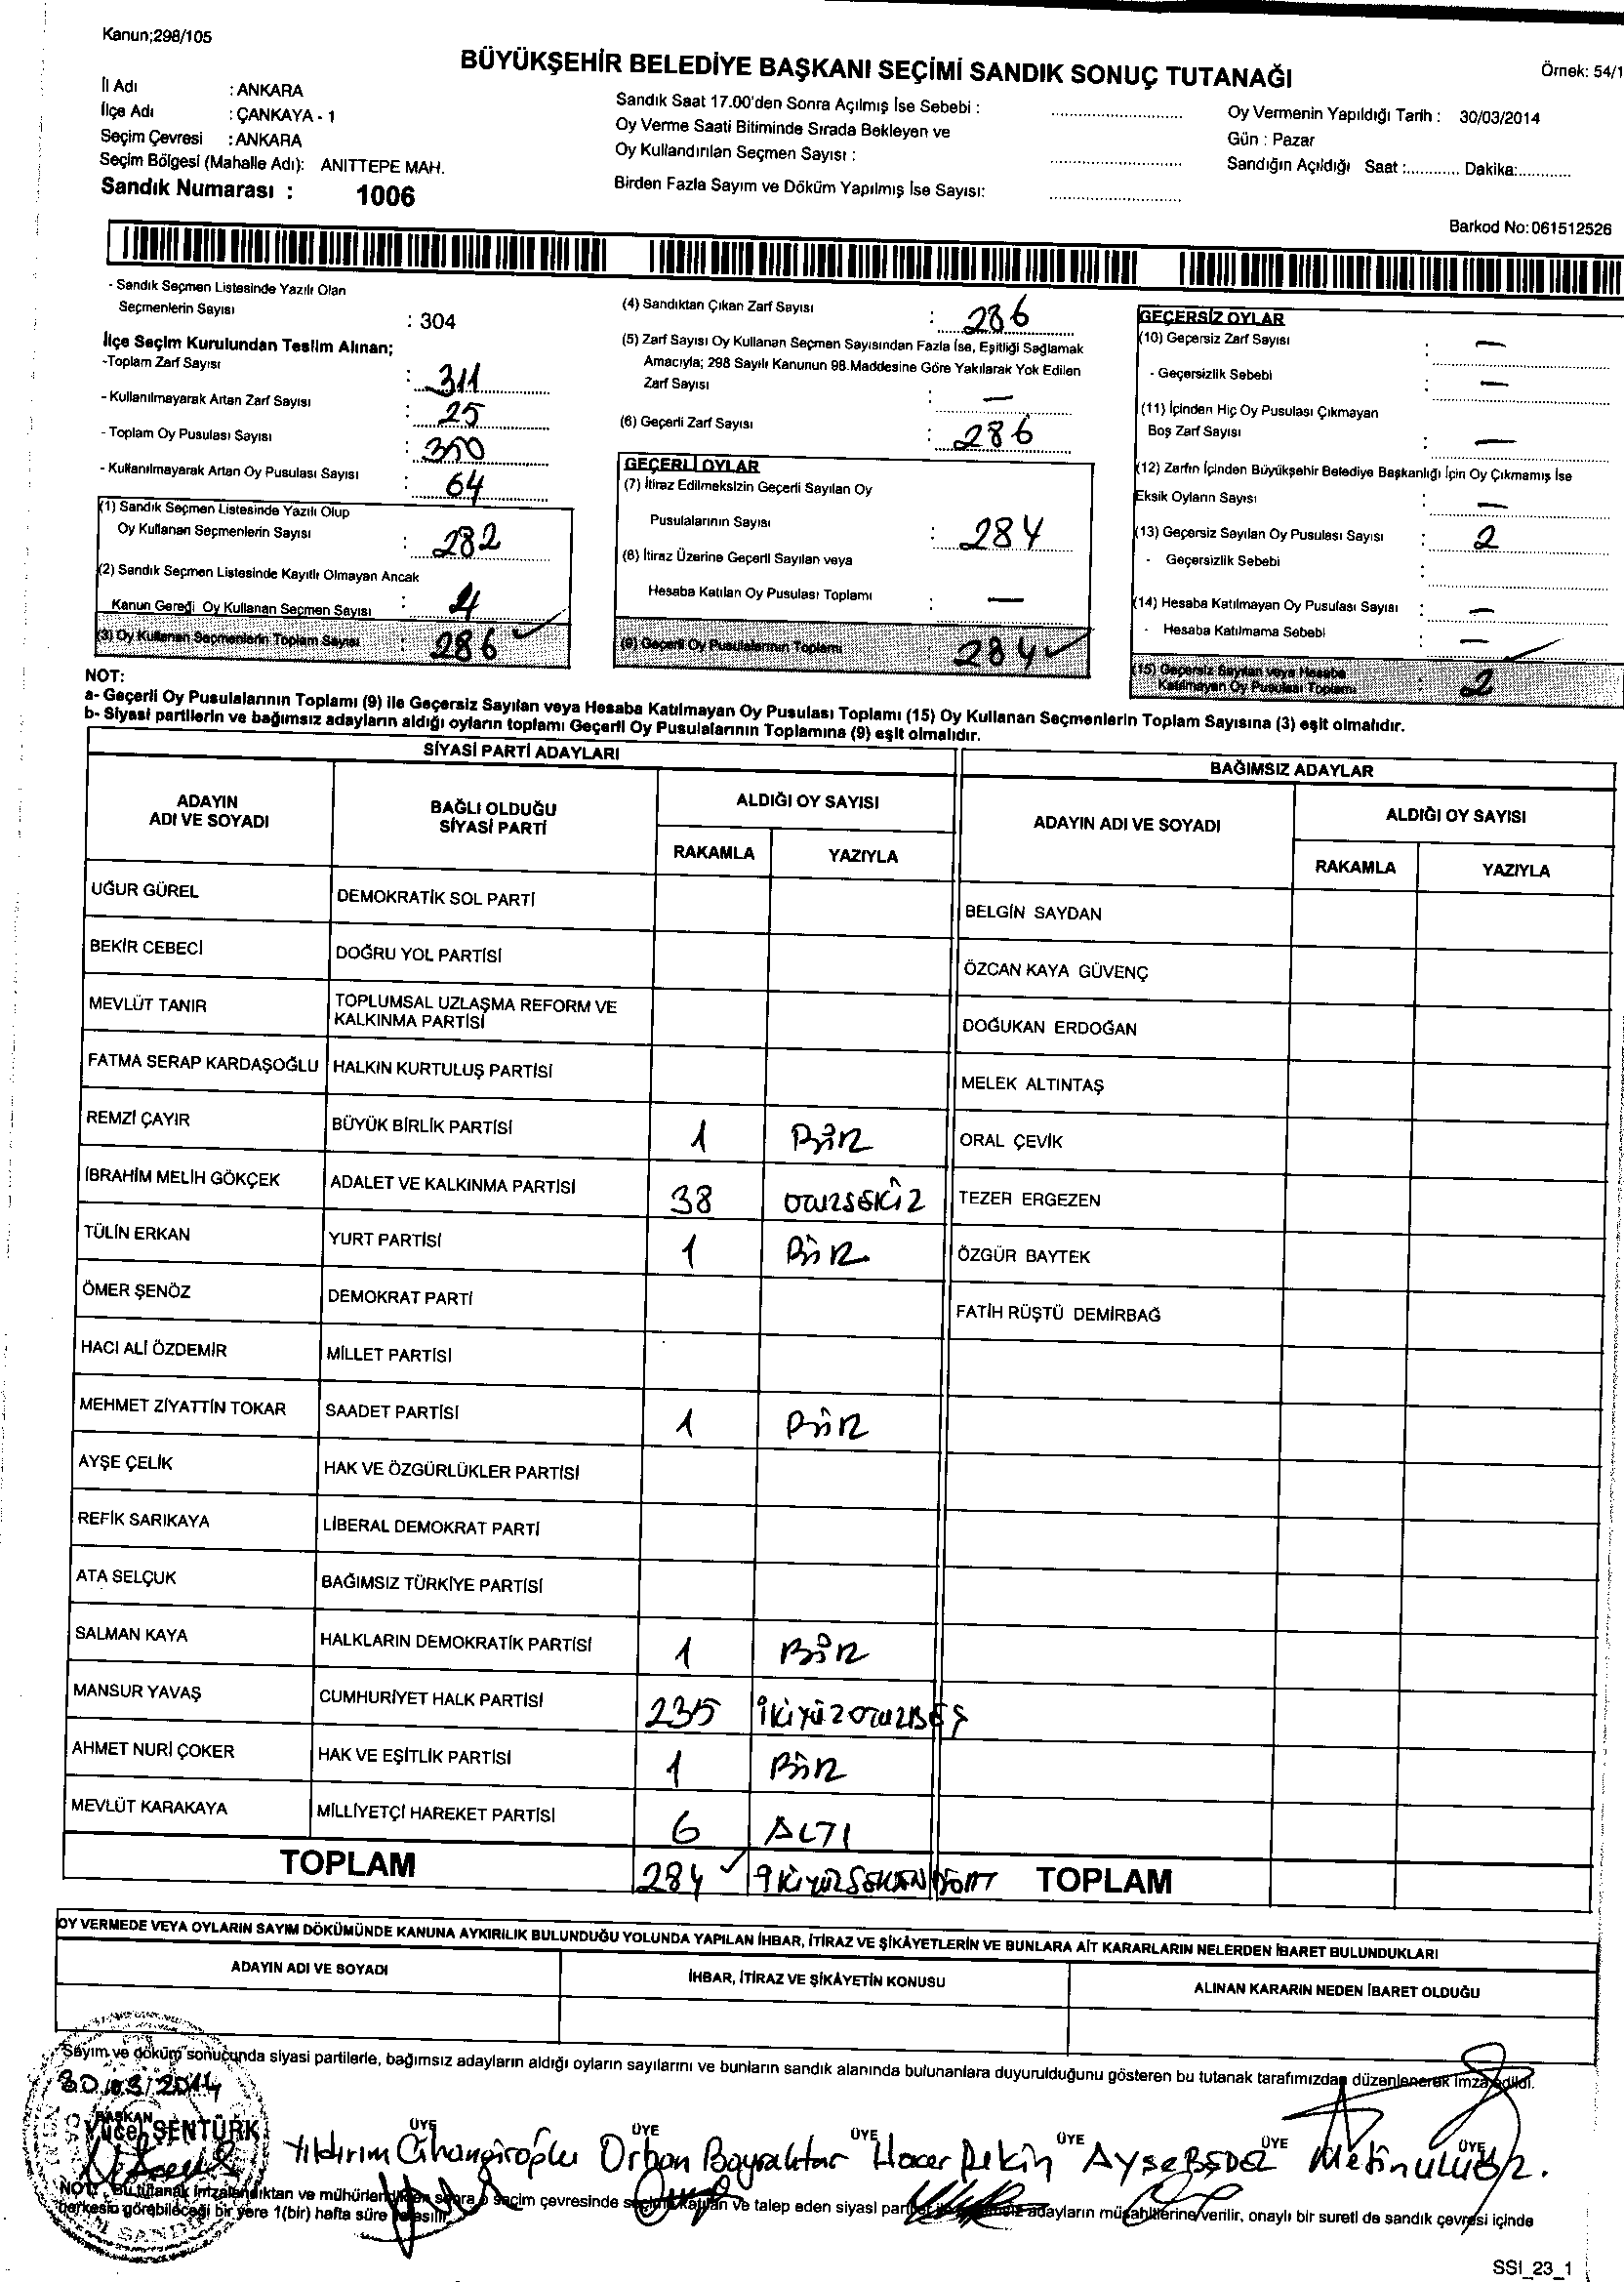 Kanun;298/105
BÜYÜKŞEHİR BELEDİYE BAŞKANI SEÇİMİ SANDIK SONUÇ TUTANAĞI
Örnek: 54/1
İl Adı : ANKARA
İlçe Adı : ÇANKAYA - 1
Seçim Çevresi : ANKARA
Seçim Bölgesi (Mahalle Adı): ANITTEPE MAH.
Sandık Numarası : 1006
Sandık Saat 17.00'den Sonra Açılmış İse Sebebi :
Oy Verme Saati Bitiminde Sırada Bekleyen ve
Oy Kullandırılan Seçmen Sayısı :
Birden Fazla Sayım ve Döküm Yapılmış İse Sayısı:
Oy Vermenin Yapıldığı Tarih : 30/03/2014
Gün : Pazar
Sandığın Açıldığı Saat :............ Dakika:............
Barkod No:061512526
- Sandık Seçmen Listesinde Yazılı Olan
Seçmenlerin Sayısı : 304
İlçe Seçim Kurulundan Teslim Alınan;
-Toplam Zarf Sayısı : 311
- Kullanılmayarak Artan Zarf Sayısı : 25
- Toplam Oy Pusulası Sayısı : 350
- Kullanılmayarak Artan Oy Pusulası Sayısı : 64
(1) Sandık Seçmen Listesinde Yazılı Olup
Oy Kullanan Seçmenlerin Sayısı : 282
(2) Sandık Seçmen Listesinde Kayıtlı Olmayan Ancak
Kanun Gereği Oy Kullanan Seçmen Sayısı : 4
(3) Oy Kullanan Seçmenlerin Toplam Sayısı : 286
(4) Sandıktan Çıkan Zarf Sayısı : 286
(5) Zarf Sayısı Oy Kullanan Seçmen Sayısından Fazla İse, Eşitliği Sağlamak
Amacıyla; 298 Sayılı Kanunun 98.Maddesine Göre Yakılarak Yok Edilen
Zarf Sayısı : —
(6) Geçerli Zarf Sayısı : 286
GEÇERLİ OYLAR
(7) İtiraz Edilmeksizin Geçerli Sayılan Oy
Pusulalarının Sayısı : 284
(8) İtiraz Üzerine Geçerli Sayılan veya
Hesaba Katılan Oy Pusulası Toplamı : —
(9) Geçerli Oy Pusulalarının Toplamı : 284
GEÇERSİZ OYLAR
(10) Geçersiz Zarf Sayısı : —
- Geçersizlik Sebebi : —
(11) İçinden Hiç Oy Pusulası Çıkmayan
Boş Zarf Sayısı : —
(12) Zarfın İçinden Büyükşehir Belediye Başkanlığı İçin Oy Çıkmamış İse
Eksik Oyların Sayısı : —
(13) Geçersiz Sayılan Oy Pusulası Sayısı : 2
- Geçersizlik Sebebi :
(14) Hesaba Katılmayan Oy Pusulası Sayısı : —
- Hesaba Katılmama Sebebi : —
(15) Geçersiz Sayılan veya Hesaba
Katılmayan Oy Pusulası Toplamı : 2
NOT:
a- Geçerli Oy Pusulalarının Toplamı (9) ile Geçersiz Sayılan veya Hesaba Katılmayan Oy Pusulası Toplamı (15) Oy Kullanan Seçmenlerin Toplam Sayısına (3) eşit olmalıdır.
b- Siyasi partilerin ve bağımsız adayların aldığı oyların toplamı Geçerli Oy Pusulalarının Toplamına (9) eşit olmalıdır.
SİYASİ PARTİ ADAYLARI
BAĞIMSIZ ADAYLAR
ADAYIN ADI VE SOYADI
BAĞLI OLDUĞU SİYASİ PARTİ
ALDIĞI OY SAYISI
RAKAMLA YAZIYLA
ADAYIN ADI VE SOYADI
ALDIĞI OY SAYISI
RAKAMLA YAZIYLA
UĞUR GÜREL DEMOKRATİK SOL PARTİ BELGİN SAYDAN
BEKİR CEBECİ DOĞRU YOL PARTİSİ ÖZCAN KAYA GÜVENÇ
MEVLÜT TANIR TOPLUMSAL UZLAŞMA REFORM VE KALKINMA PARTİSİ DOĞUKAN ERDOĞAN
FATMA SERAP KARDAŞOĞLU HALKIN KURTULUŞ PARTİSİ MELEK ALTINTAŞ
REMZİ ÇAYIR BÜYÜK BİRLİK PARTİSİ 1 BİR ORAL ÇEVİK
İBRAHİM MELİH GÖKÇEK ADALET VE KALKINMA PARTİSİ 38 OTUZSEKİZ TEZER ERGEZEN
TÜLİN ERKAN YURT PARTİSİ 1 BİR ÖZGÜR BAYTEK
ÖMER ŞENÖZ DEMOKRAT PARTİ FATİH RÜŞTÜ DEMİRBAĞ
HACI ALİ ÖZDEMİR MİLLET PARTİSİ
MEHMET ZİYATTİN TOKAR SAADET PARTİSİ 1 BİR
AYŞE ÇELİK HAK VE ÖZGÜRLÜKLER PARTİSİ
REFİK SARIKAYA LİBERAL DEMOKRAT PARTİ
ATA SELÇUK BAĞIMSIZ TÜRKİYE PARTİSİ
SALMAN KAYA HALKLARIN DEMOKRATİK PARTİSİ 1 BİR
MANSUR YAVAŞ CUMHURİYET HALK PARTİSİ 235 İKİYÜZOTUZBEŞ
AHMET NURİ ÇOKER HAK VE EŞİTLİK PARTİSİ 1 BİR
MEVLÜT KARAKAYA MİLLİYETÇİ HAREKET PARTİSİ 6 ALTI
TOPLAM 284 İKİYÜZSEKSENDÖRT TOPLAM
OY VERMEDE VEYA OYLARIN SAYIM DÖKÜMÜNDE KANUNA AYKIRILIK BULUNDUĞU YOLUNDA YAPILAN İHBAR, İTİRAZ VE ŞİKÂYETLERİN VE BUNLARA AİT KARARLARIN NELERDEN İBARET BULUNDUKLARI
ADAYIN ADI VE SOYADI İHBAR, İTİRAZ VE ŞİKÂYETİN KONUSU ALINAN KARARIN NEDEN İBARET OLDUĞU
Sayım ve döküm sonucunda siyasi partilerle, bağımsız adayların aldığı oyların sayılarını ve bunların sandık alanında bulunanlara duyurulduğunu gösteren bu tutanak tarafımızdan düzenlenerek imza edildi.
30/03/2014
BAŞKAN ÜYE ÜYE ÜYE ÜYE ÜYE ÜYE
Yücel ŞENTÜRK Yıldırım Cihangiroğlu Orhan Bayraktar Hacer Pekin Metin
NOT: Bu tutanak imzalandıktan ve mühürlendikten sonra o seçim çevresinde seçime katılan ve talep eden siyasi partiler ile bağımsız adayların müşahitlerine verilir, onaylı bir sureti de sandık çevresi içinde
herkesin görebileceği bir yere 1(bir) hafta süre ile asılır.
SSI_23_1